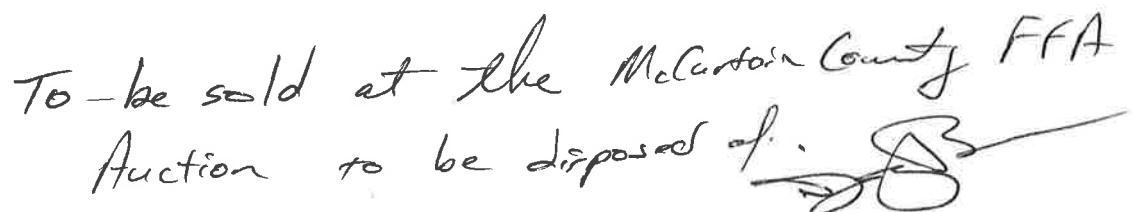 To be sold at the McCurtain County FFA
Auction to be disposed of.